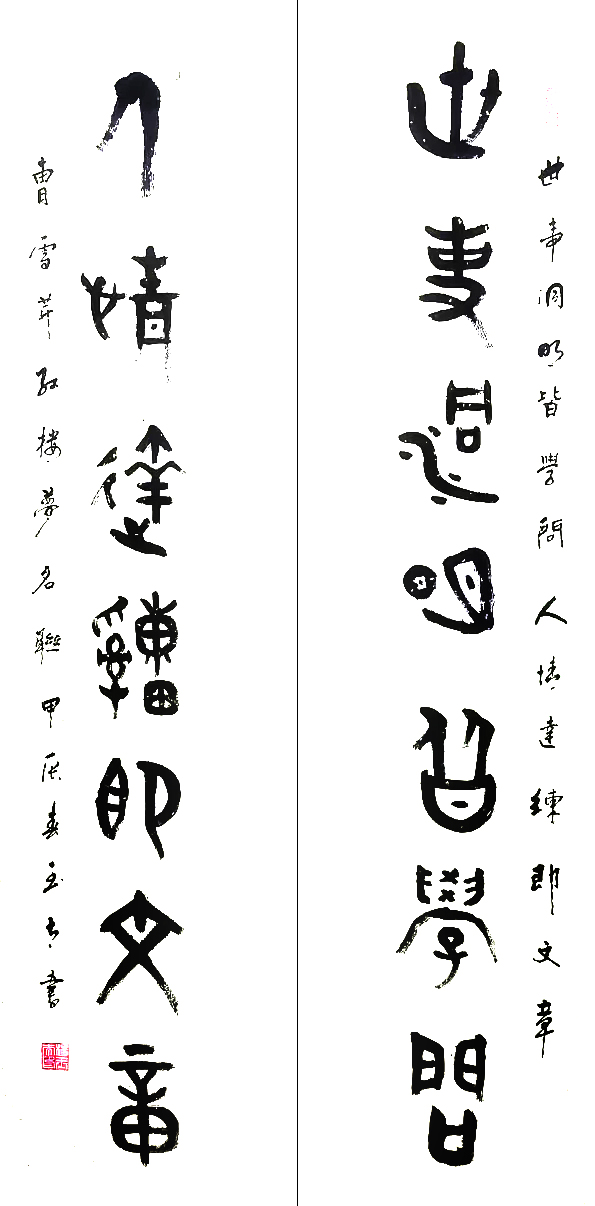 世事洞明皆學問 人情達練即文章
世事洞明皆學問
人情達練即文章
曹雪芹紅樓夢名聯甲辰春玉書